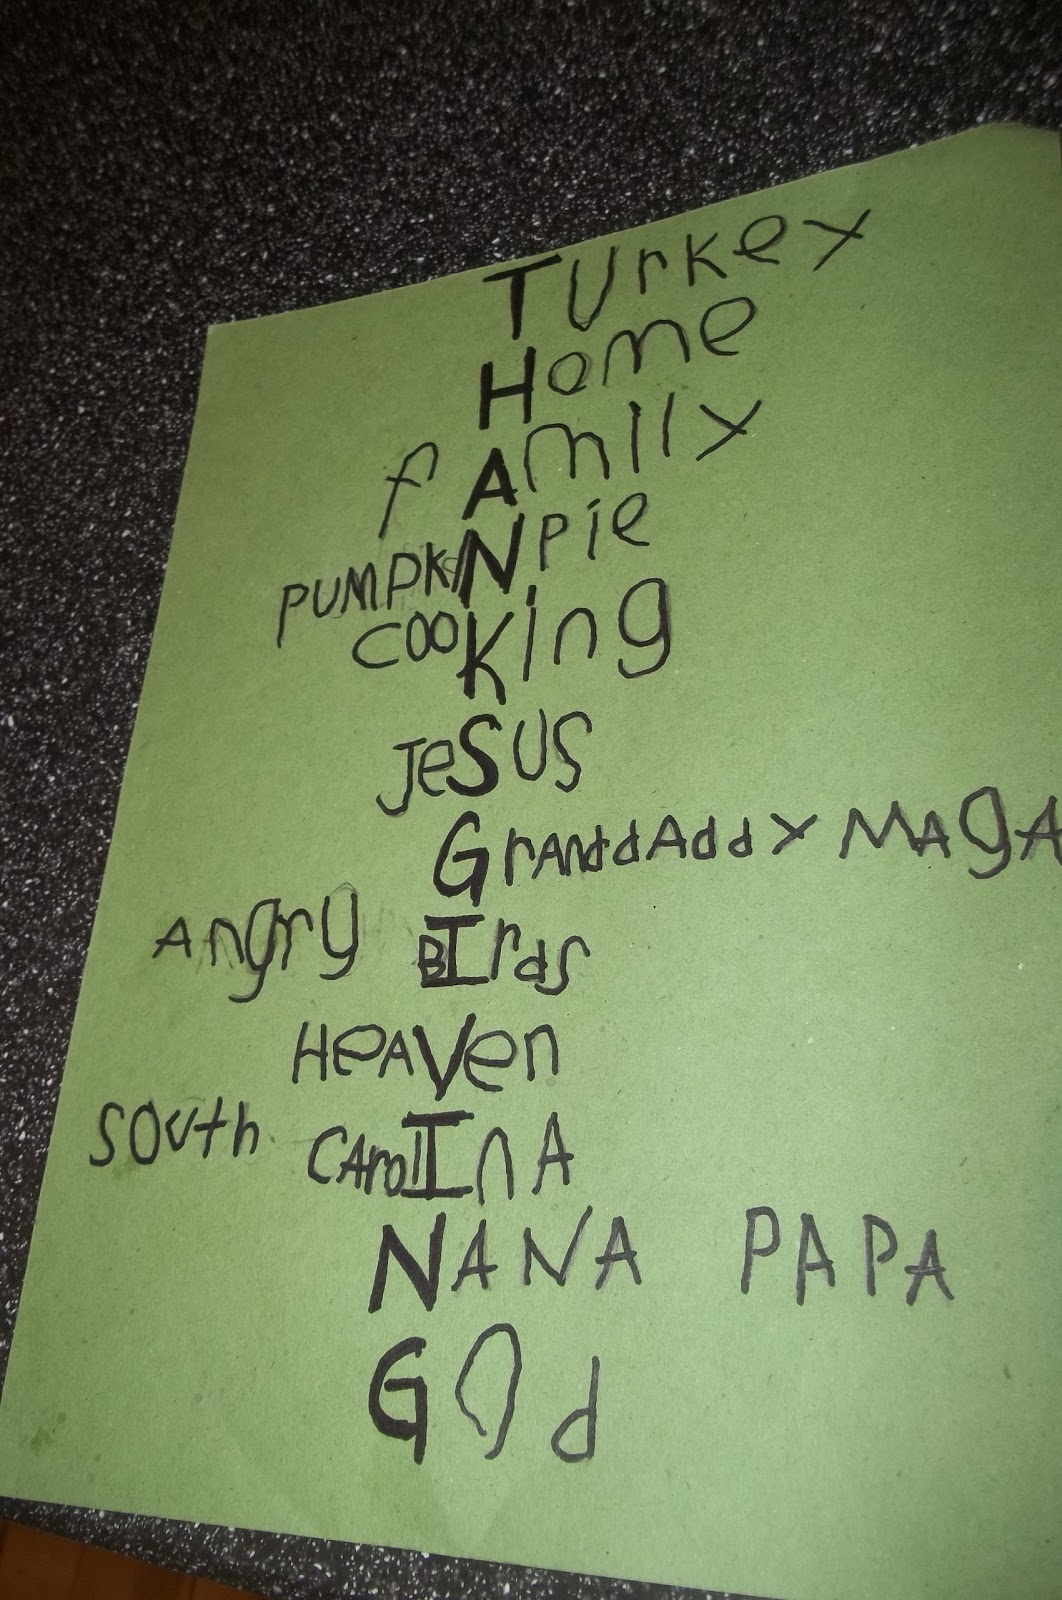 TUrkey
Home
fAmIly
PUMPKiN Pie
cooKing
JeSUS
GrAnddAddy MAgA
Angry BIrds
HeAVen
SOuth CArolInA
NANA PAPA
GOd